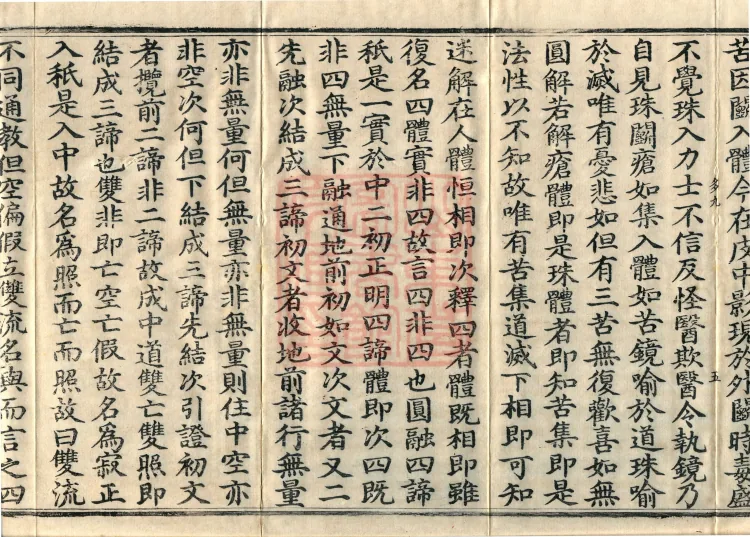 苦因鬬入體今在皮中影現於外鬬時毒盛
不覺珠入力士不信反怪醫欺醫令執鏡乃
自見珠鬬瘡如集入體如苦鏡喻於道珠喻
於滅唯有憂悲如但有三苦無復歡喜如無
圓解若解瘡體即是珠體者即知苦集即是
法性以不知故唯有苦集道滅下相即可知
迷解在人體恒相即次釋四者體既相即雖
復名四體實非四故言四非四也圓融四諦
秖是一實於中二初正明四諦體即次四既
非四無量下融通地前初如文次文者又二
先融次結成三諦初文者收地前諸行無量
亦非無量何但無量亦非無量則住中空亦
非空次何但下結成三諦先結次引證初文
者攬前二諦非二諦故成中道雙亡雙照即
結成三諦也雙非即亡空亡假故名為寂正
入秖是入中故名為照而亡而照故曰雙流
不同通教但空偏假立雙流名與而言之四
多九
五